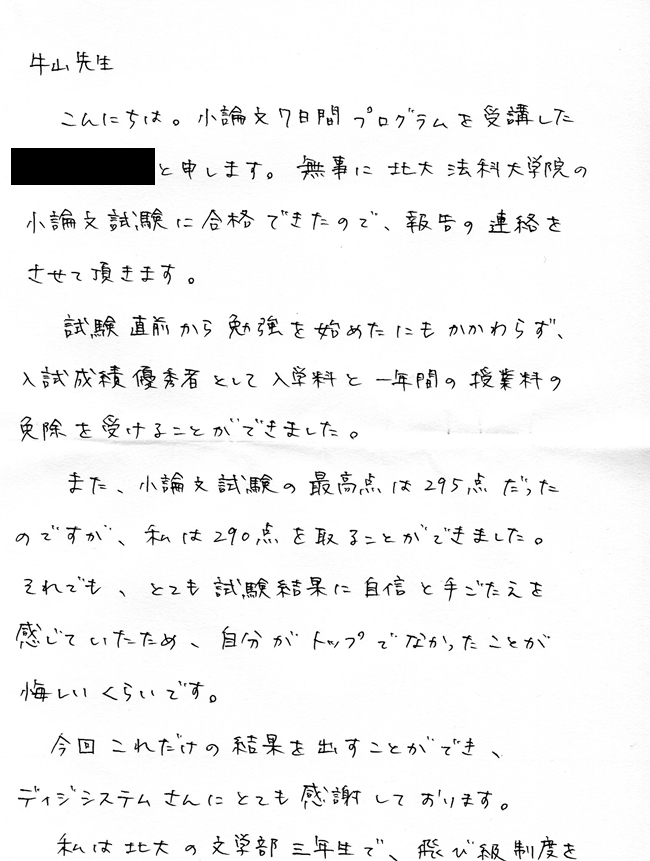 牛山先生
こんにちは。小論文7日間プログラムを受講した
と申します。無事に北大法科大学院の
小論文試験に合格できたので、報告の連絡を
させて頂きます。
試験直前から勉強を始めたにもかかわらず、
入試成績優秀者として入学料と一年間の授業料の
免除を受けることができました。
また、小論文試験の最高点は295点だった
のですが、私は290点を取ることができました。
それでも、とても試験結果に自信と手ごたえを
感じていたため、自分がトップでなかったことが
悔しいくらいです。
今回これだけの結果を出すことができ、
ディジシステムさんにとても感謝しております。
私は北大の文学部三年生で、飛び級制度を